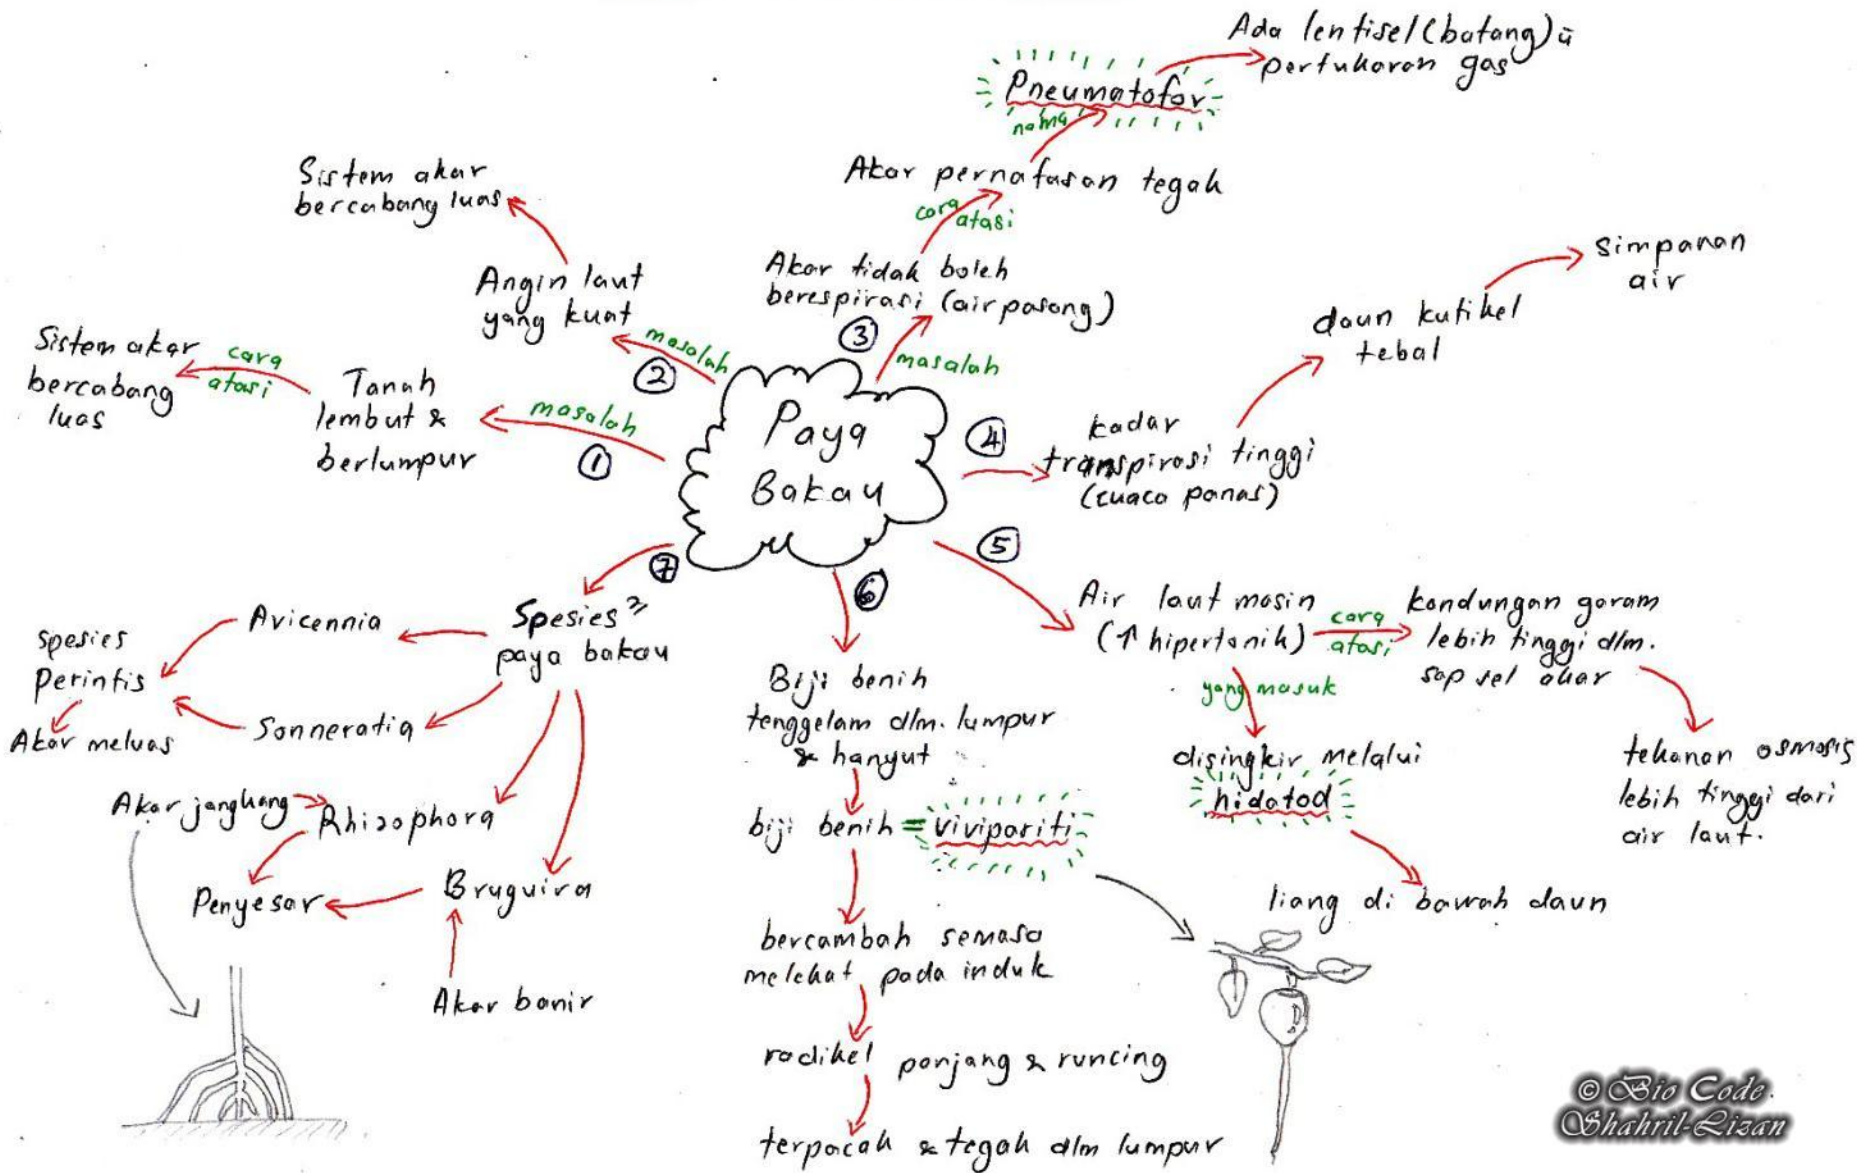 Paya
Bakau
①
masalah
Tanah
lembut &
berlumpur
cara
atasi
Sistem akar
bercabang
luas
②
masalah
Angin laut
yang kuat
Sistem akar
bercabang luas
③
masalah
Akar tidak boleh
berespirasi (air pasang)
cara
atasi
Akar pernafasan tegak
nama
Pneumatofor
Ada lentisel (batang) ü
pertukaran gas
④
kadar
transpirasi tinggi
(cuaca panas)
daun kutikel
tebal
simpanan
air
⑤
Air laut masin
(↑ hipertonik)
cara
atasi
kandungan garam
lebih tinggi dlm.
sap sel akar
tekanan osmosis
lebih tinggi dari
air laut.
yang masuk
disingkir melalui
hidatod
liang di bawah daun
⑥
Biji benih
tenggelam dlm. lumpur
& hanyut
biji benih = vivipariti
bercambah semasa
melekat pada induk
radikel panjang & runcing
terpacak & tegak dlm lumpur
⑦
Spesies²
paya bakau
Avicennia
Sonneratia
spesies
Perintis
Akar meluas
Rhizophora
Akar jangkang
Bruguira
Akar banir
Penyesar
© Bio Code
Shahril-Lizan